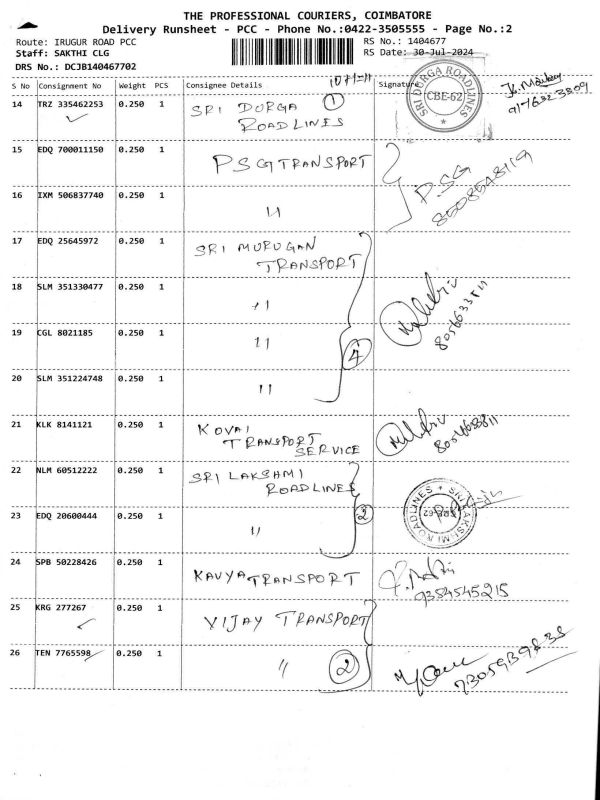 THE PROFESSIONAL COURIERS, COIMBATORE
Delivery Runsheet - PCC - Phone No.:0422-3505555 - Page No.:2
Route: IRUGUR ROAD PCC
RS No.: 1404677
Staff: SAKTHI CLG
RS Date: 30-Jul-2024
DRS No.: DCJB140467702
S No Consignment No Weight PCS Consignee Details Signature
14 TRZ 335462253 0.250 1 SRI DURGA ①
ROADLINES
SRI DURGA ROADLINES
CBE-62
15 EDQ 700011150 0.250 1 PSG TRANSPORT
PSG
8508548119
16 IXM 506837740 0.250 1 〃
17 EDQ 25645972 0.250 1 SRI MURUGAN
TRANSPORT
18 SLM 351330477 0.250 1 〃
8056633811
19 CGL 8021185 0.250 1 〃
④
20 SLM 351224748 0.250 1 〃
21 KLK 8141121 0.250 1 KOVAI
TRANSPORT
SERVICE
22 NLM 60512222 0.250 1 SRI LAKSHMI
ROADLINES
②
23 EDQ 20600444 0.250 1 〃
SRI LAKSHMI ROADLINES
24 SPB 50228426 0.250 1 KAVYA TRANSPORT
9354545215
25 KRG 277267 0.250 1 VIJAY TRANSPORT
26 TEN 7765598 0.250 1 〃 ②